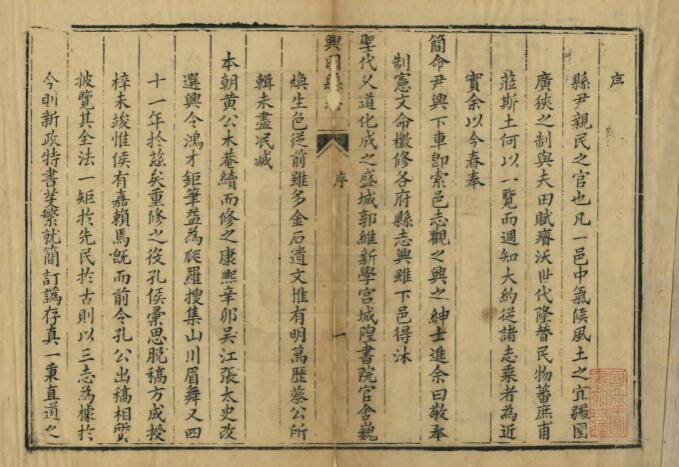 序
縣尹親民之官也凡一邑中氣候風土之宜疆圉
廣狹之制與夫田賦瘠沃世代隆替民物蕃庶甫
蒞斯土何以一覽而週知大約從諸志乘者為近
實余以今春奉
簡命尹興下車即索邑志觀之興之紳士進余曰敬奉
制憲文命檄修各府縣志興雖下邑得沐
聖代文道化成之盛城郭維新學宮城隍書院官舍巍
興國縣志
序
一
煥生色從前雖多金石遺文惟有明萬歷蔡公所
輯未盡泯滅
本朝黃公木菴續而修之康熙辛卯吳江張太史改
選興令鴻才鉅筆益為爬羅搜集山川眉舞又四
十一年於茲矣重修之役孔侯彙思脫稿方成授
梓未竣惟侯有嘉賴焉旣而前令孔公出稿相質
披覽其全法一矩於先民於古則以三志為據於
今則新政特書芟繁就簡訂譌存真一秉直道之